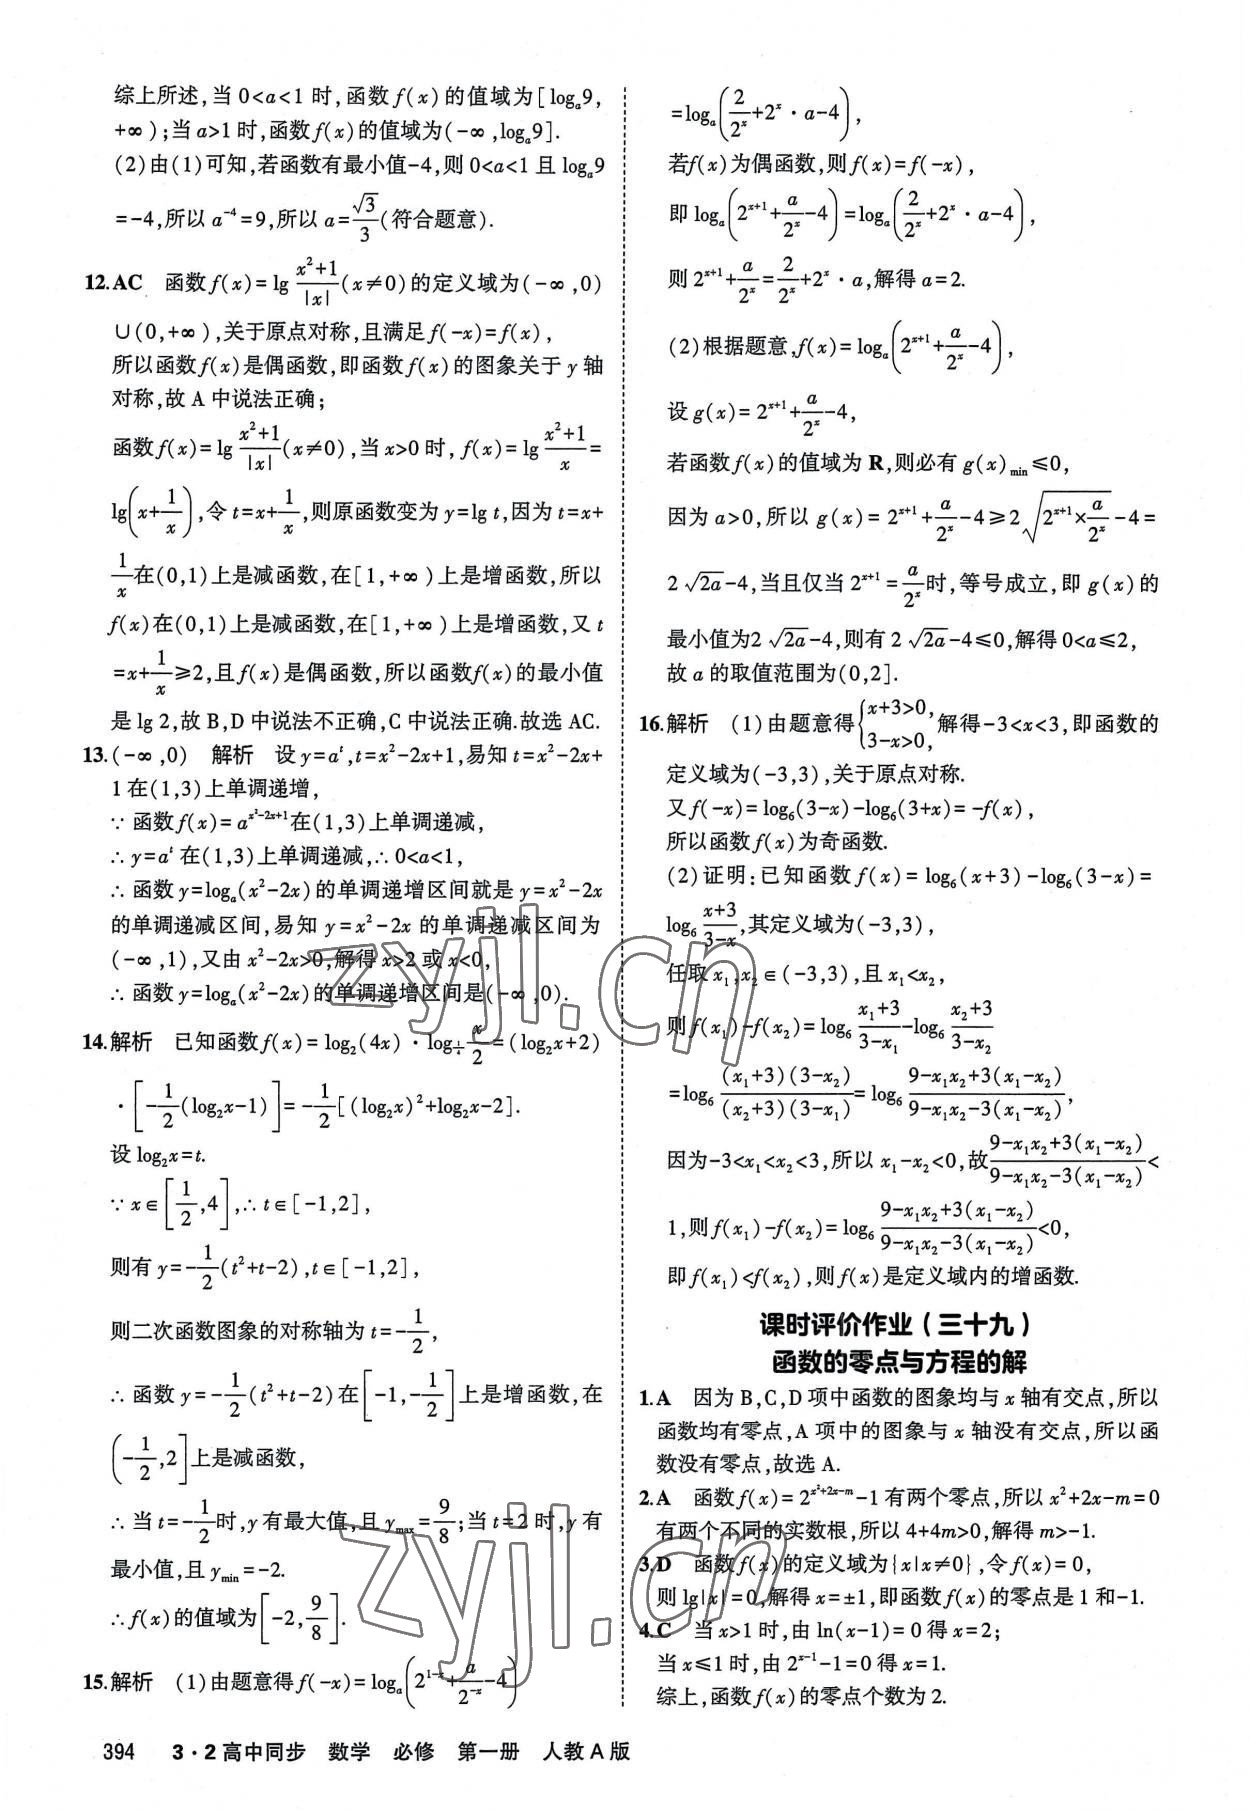 综上所述,当 0<a<1 时,函数 f(x) 的值域为[logₐ9,
+∞);当 a>1 时,函数 f(x) 的值域为(-∞,logₐ9].
(2)由(1)可知,若函数有最小值-4,则 0<a<1 且 logₐ9
=-4,所以 a⁻⁴=9,所以 a=√3/3(符合题意).
12.AC 函数 f(x)=lg (x²+1)/|x| (x≠0)的定义域为(-∞,0)
∪(0,+∞),关于原点对称,且满足 f(-x)=f(x),
所以函数 f(x)是偶函数,即函数 f(x)的图象关于 y 轴
对称,故 A 中说法正确;
函数 f(x)=lg (x²+1)/|x| (x≠0),当 x>0 时,f(x)=lg (x²+1)/x =
lg(x+1/x),令 t=x+1/x,则原函数变为 y=lg t,因为 t=x+
1/x 在(0,1)上是减函数,在[1,+∞)上是增函数,所以
f(x)在(0,1)上是减函数,在[1,+∞)上是增函数,又 t
=x+1/x≥2,且 f(x)是偶函数,所以函数f(x)的最小值
是 lg 2,故 B,D 中说法不正确,C 中说法正确.故选 AC.
13.(-∞,0) 解析 设 y=aᵗ,t=x²-2x+1,易知 t=x²-2x+
1 在(1,3)上单调递增,
∵ 函数 f(x)=a^(x²-2x+1)在(1,3)上单调递减,
∴ y=aᵗ 在(1,3)上单调递减,∴ 0<a<1,
∴ 函数 y=logₐ(x²-2x)的单调递增区间就是 y=x²-2x
的单调递减区间,易知 y=x²-2x 的单调递减区间为
(-∞,1),又由 x²-2x>0,解得 x>2 或 x<0,
∴ 函数 y=logₐ(x²-2x)的单调递增区间是(-∞,0).
14.解析 已知函数 f(x)=log₂(4x)·log_(1/4) x/2=(log₂x+2)
·[-1/2(log₂x-1)]=-1/2[(log₂x)²+log₂x-2].
设 log₂x=t.
∵ x∈[1/2,4],∴ t∈[-1,2],
则有 y=-1/2(t²+t-2),t∈[-1,2],
则二次函数图象的对称轴为 t=-1/2,
∴ 函数 y=-1/2(t²+t-2)在[-1,-1/2]上是增函数,在
(-1/2,2]上是减函数,
∴ 当 t=-1/2时,y 有最大值,且 y_max=9/8;当 t=2 时,y 有
最小值,且 y_min=-2.
∴ f(x)的值域为[-2,9/8].
15.解析 (1)由题意得 f(-x)=logₐ(2^(1-x)+a/2^(-x)-4)
=logₐ(2/2ˣ+2ˣ·a-4),
若f(x)为偶函数,则 f(x)=f(-x),
即 logₐ(2^(x+1)+a/2ˣ-4)=logₐ(2/2ˣ+2ˣ·a-4),
则 2^(x+1)+a/2ˣ=2/2ˣ+2ˣ·a,解得 a=2.
(2)根据题意,f(x)=logₐ(2^(x+1)+a/2ˣ-4),
设 g(x)=2^(x+1)+a/2ˣ-4,
若函数 f(x)的值域为 R,则必有 g(x)_min≤0,
因为 a>0,所以 g(x)=2^(x+1)+a/2ˣ-4≥2√(2^(x+1)×a/2ˣ)-4=
2√(2a)-4,当且仅当 2^(x+1)=a/2ˣ时,等号成立,即 g(x)的
最小值为2√(2a)-4,则有 2√(2a)-4≤0,解得 0<a≤2,
故 a 的取值范围为(0,2].
16.解析 (1)由题意得{x+3>0, 3-x>0, 解得-3<x<3,即函数的
定义域为(-3,3),关于原点对称.
又 f(-x)=log₆(3-x)-log₆(3+x)=-f(x),
所以函数 f(x)为奇函数.
(2)证明:已知函数 f(x)=log₆(x+3)-log₆(3-x)=
log₆ (x+3)/(3-x),其定义域为(-3,3),
任取 x₁,x₂∈(-3,3),且 x₁<x₂,
则 f(x₁)-f(x₂)=log₆ (x₁+3)/(3-x₁)-log₆ (x₂+3)/(3-x₂)
=log₆ (x₁+3)(3-x₂)/(x₂+3)(3-x₁)=log₆ (9-x₁x₂+3(x₁-x₂))/(9-x₁x₂-3(x₁-x₂)),
因为-3<x₁<x₂<3,所以 x₁-x₂<0,故(9-x₁x₂+3(x₁-x₂))/(9-x₁x₂-3(x₁-x₂))<
1,则 f(x₁)-f(x₂)=log₆ (9-x₁x₂+3(x₁-x₂))/(9-x₁x₂-3(x₁-x₂))<0,
即 f(x₁)<f(x₂),则 f(x)是定义域内的增函数.
课时评价作业(三十九)
函数的零点与方程的解
1.A 因为 B,C,D 项中函数的图象均与 x 轴有交点,所以
函数均有零点,A 项中的图象与 x 轴没有交点,所以函
数没有零点,故选 A.
2.A 函数 f(x)=2^(x²+2x-m)-1 有两个零点,所以 x²+2x-m=0
有两个不同的实数根,所以 4+4m>0,解得 m>-1.
3.D 函数 f(x)的定义域为{x|x≠0},令 f(x)=0,
则 lg|x|=0,解得 x=±1,即函数 f(x)的零点是 1 和-1.
4.C 当 x>1 时,由 ln(x-1)=0 得 x=2;
当 x≤1 时,由 2^(x-1)-1=0 得 x=1.
综上,函数 f(x)的零点个数为 2.
394 3·2高中同步 数学 必修 第一册 人教 A 版
zyjl.cn
zyjl.cn